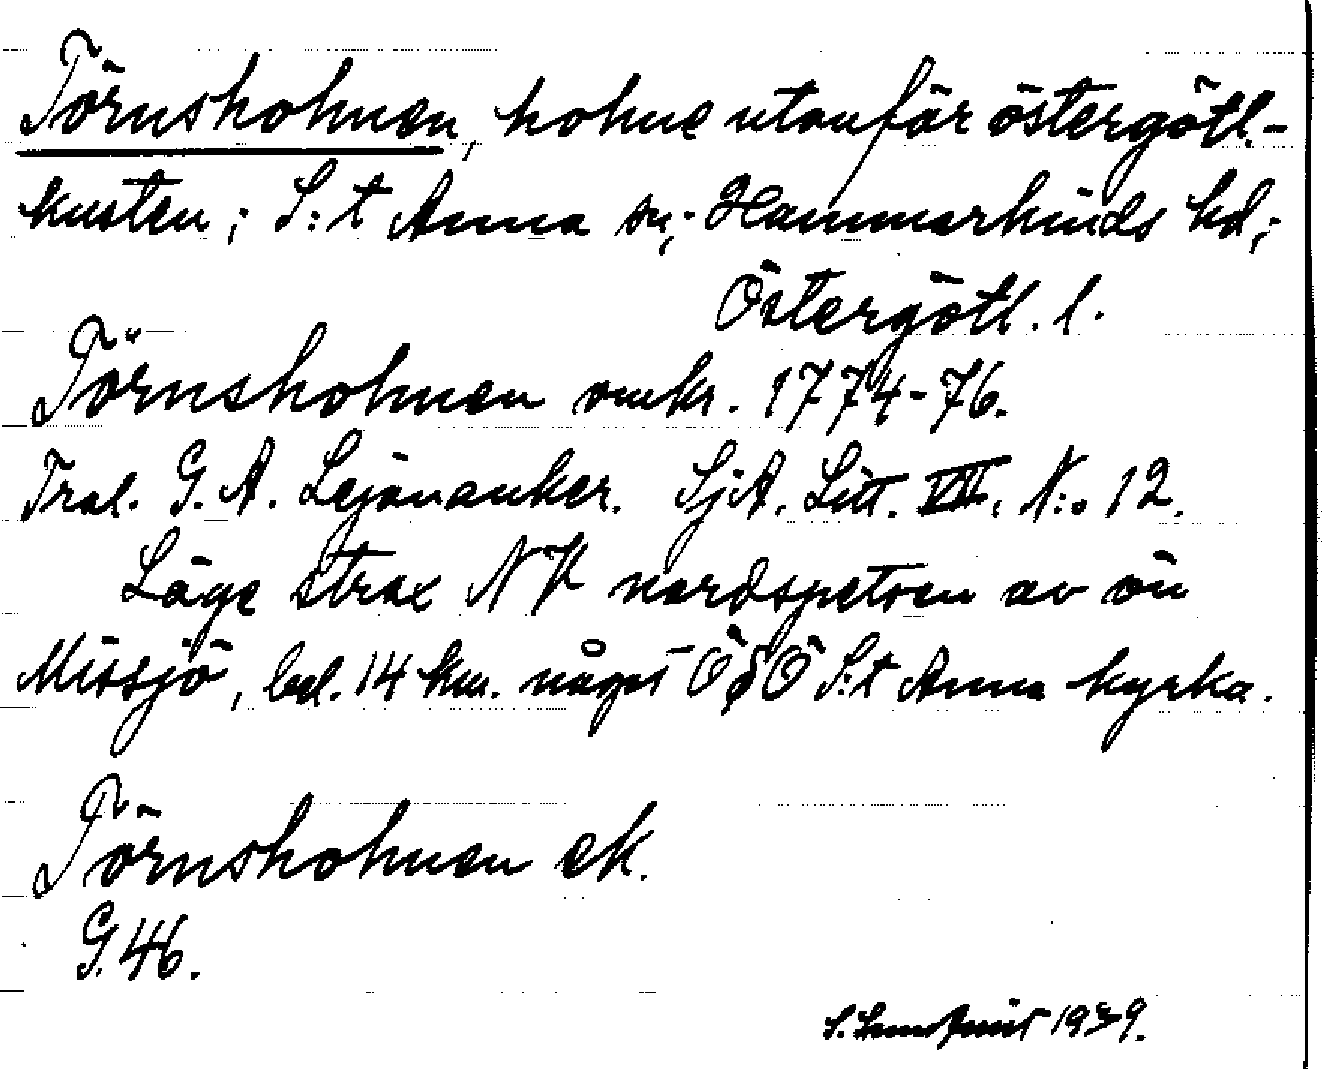 Törnsholmen, holme utanför östergötl.-
kusten; S:t Anna sn; Hammarkinds hd;
Östergötl. l.
Törnsholmen omkr. 1774-76.
Tral. G. A. Lejonanker. SjA. Litt. VII. N:o 12.
Läge strax NV nordspetsen av ön
Missjö, bel. 14 km. något ÖSÖ S:t Anna kyrka.
Törnsholmen ek.
G. 46.
S. Lundquist 1939.